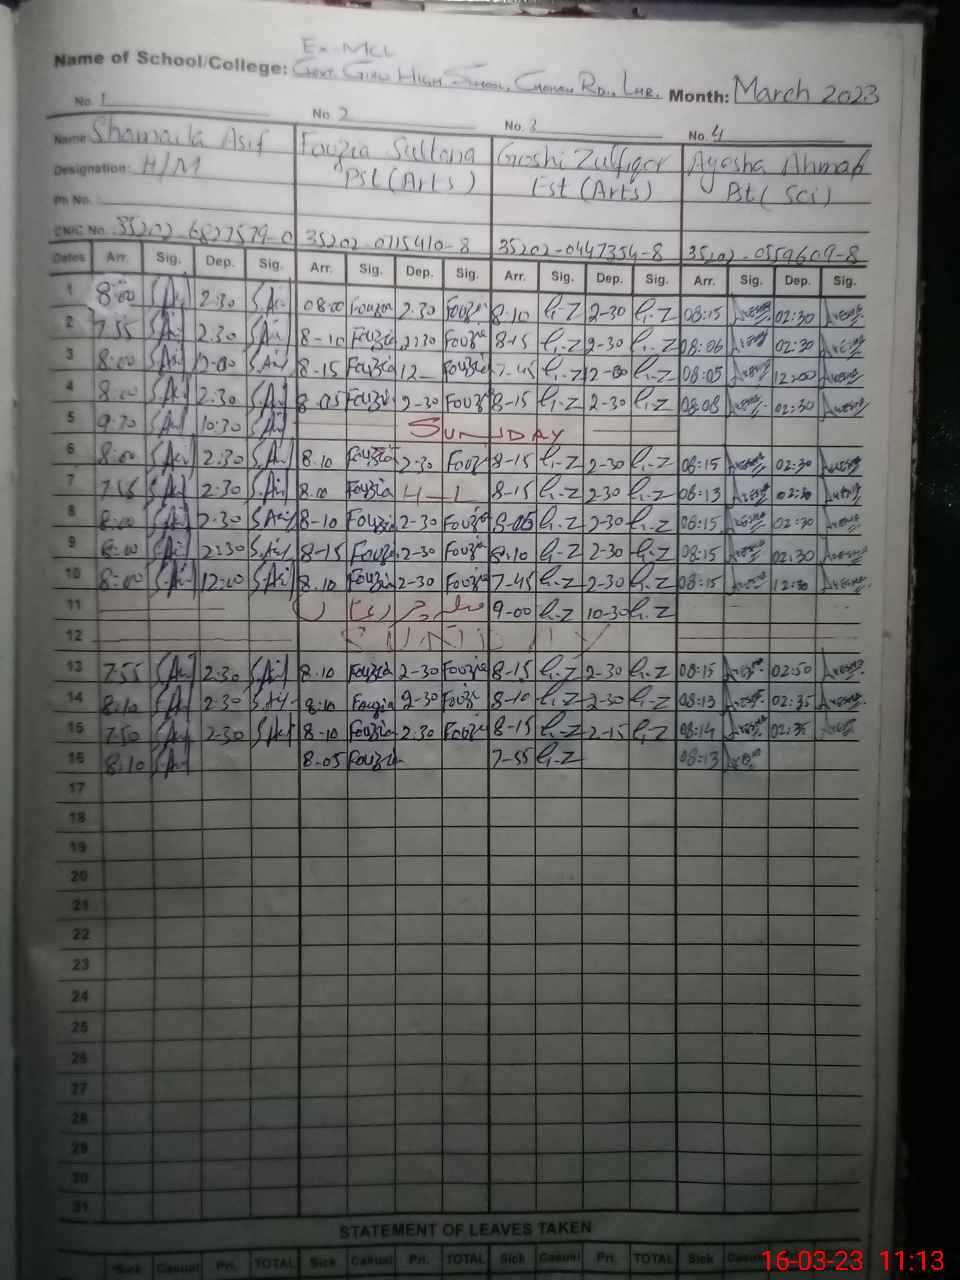 Ex-MCL
Name of School/College: Govt. Girls High School, Chohan Rd., Lhr. Month: March 2023
No. 1 No. 2 No. 3 No. 4
Name Shamaila Asif Fouzia Sultana Goshi Zulfiqar Ayesha Ahmad
Designation: H/M Pst (Arts) Est (Arts) Bst (Sci)
Ph No.
CNIC No. 35202-6827579-0 35202-0715410-8 35202-0447354-8 35202-0559609-8
Dates Arr. Sig. Dep. Sig. Arr. Sig. Dep. Sig. Arr. Sig. Dep. Sig. Arr. Sig. Dep. Sig.
1 8:00 S.Asif 2:30 S.Asif 08:00 Fouzia 2.30 Fouzia 8-10 G-Z 2-30 G-Z 08:15 02:30
2 7.55 S.Asif 2.30 S.Asif 8-10 Fouzia 2:30 Fouzia 8-15 G-Z 2-30 G-Z 08:06 02:30
3 8:00 S.Asif 12-00 S.Asif 8-15 Fouzia 12 Fouzia 7-45 G-Z 12-00 G-Z 08:05 12:00
4 8:00 S.Asif 2.30 S.Asif 8.05 Fouzia 2-30 Fouzia 8-15 G-Z 2-30 G-Z 08:08 02:30
5 9:30 S.Asif 10:30 S.Asif SUNDAY
6 8:00 S.Asif 2:30 S.Asif 8.10 Fouzia 2:30 Fouzia 8-15 G-Z 2-30 G-Z 08:15 02:30
7 7.55 S.Asif 2:30 S.Asif 8.10 Fouzia H-L 8-15 G-Z 2-30 G-Z 08:13 02:30
8 8:00 S.Asif 2:30 S.Asif 8-10 Fouzia 2-30 Fouzia 8-05 G-Z 2-30 G-Z 08:15 02:30
9 8:00 S.Asif 2:30 S.Asif 8-15 Fouzia 2-30 Fouzia 8.10 G-Z 2-30 G-Z 08:15 02:30
10 8:00 S.Asif 12:00 S.Asif 8.10 Fouzia 2-30 Fouzia 7-45 G-Z 2-30 G-Z 08:15 12:30
11 9-00 G-Z 10-30 G-Z
12 SUNDAY
13 7:55 S.Asif 2.30 S.Asif 8.10 Fouzia 2-30 Fouzia 8-15 G-Z 2-30 G-Z 08:15 02:50
14 8:10 S.Asif 2:30 S.Asif 8:10 Fouzia 2-30 Fouzia 8-10 G-Z 2-30 G-Z 08:13 02:35
15 7:50 S.Asif 2-30 S.Asif 8-10 Fouzia 2.30 Fouzia 8-15 G-Z 2-15 G-Z 08:14 02:35
16 8:10 S.Asif 8.05 Fouzia 7-55 G-Z 08:13
17
18
19
20
21
22
23
24
25
26
27
28
29
30
31
STATEMENT OF LEAVES TAKEN
Sick Casual Pri. TOTAL Sick Casual Pri. TOTAL Sick Casual Pri. TOTAL Sick
16-03-23 11:13